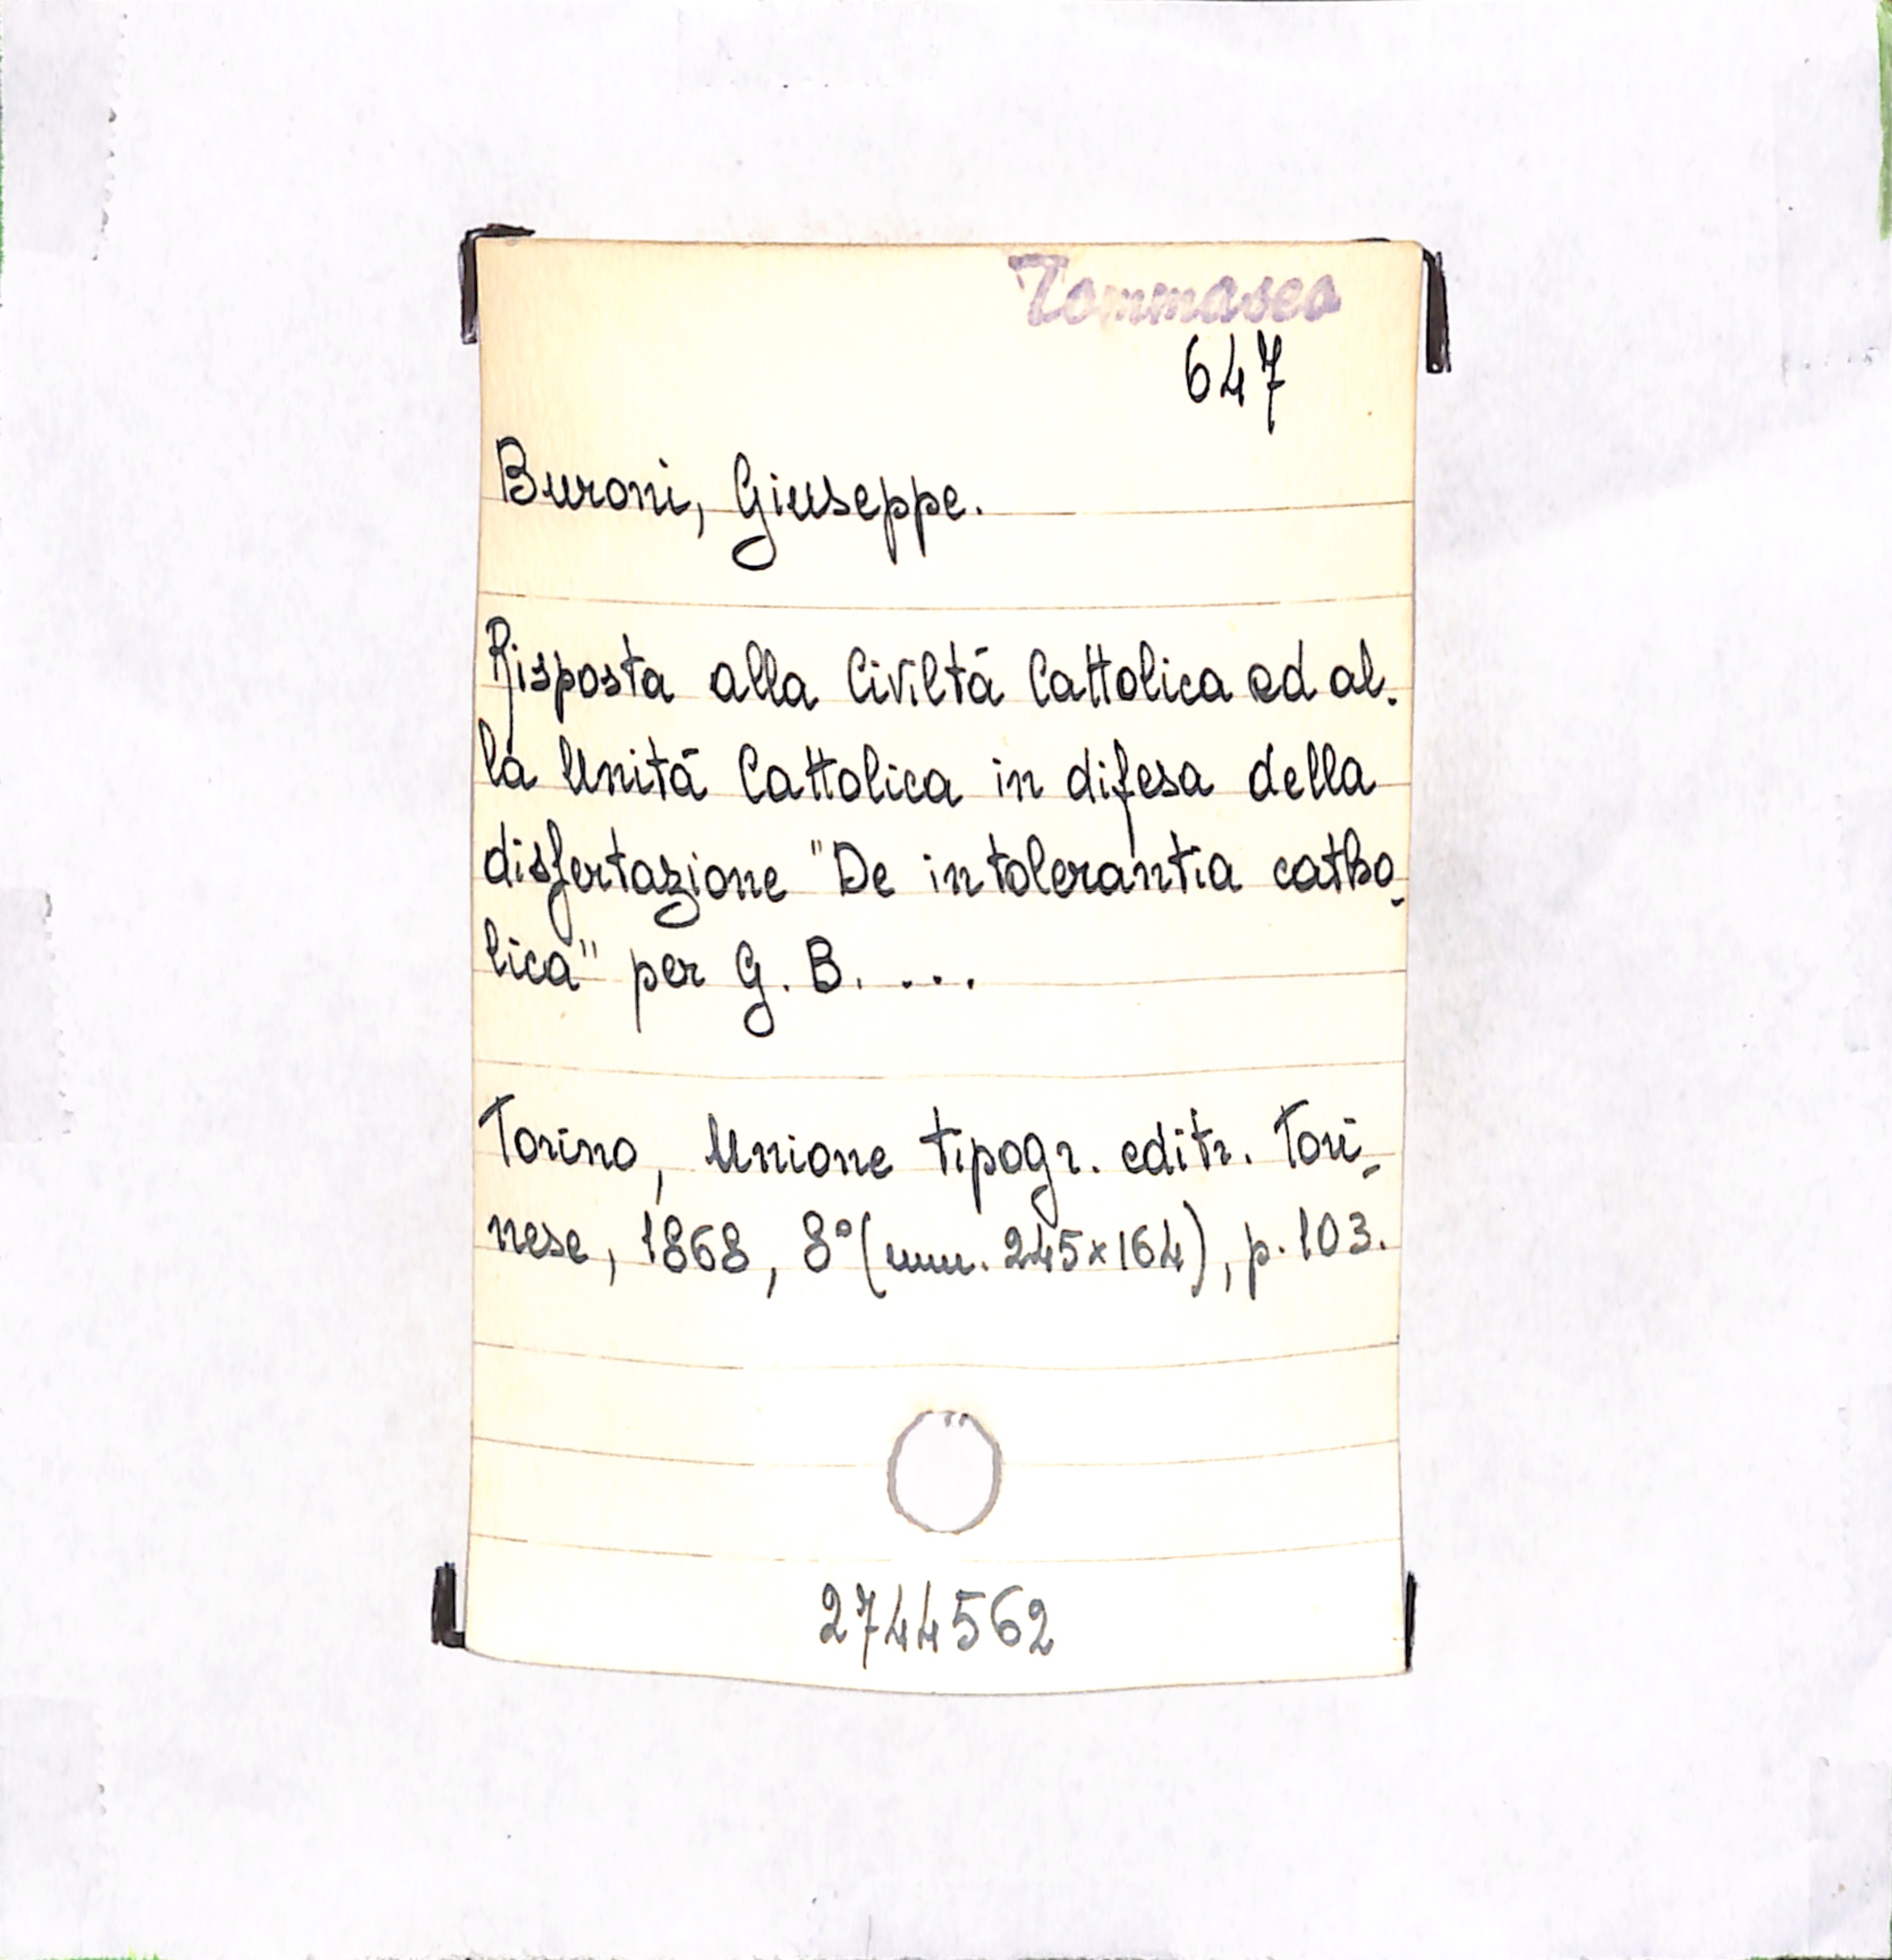 Tommaseo
647
Buroni, Giuseppe.
Risposta alla Civiltá Cattolica ed al-
la Unitá Cattolica in difesa della
disſertazione "De intolerantia catho-
lica" per G. B. ...
Torino, Unione tipogr. editr. Tori-
nese, 1868, 8° (mm. 245×164), p. 103.
2744562